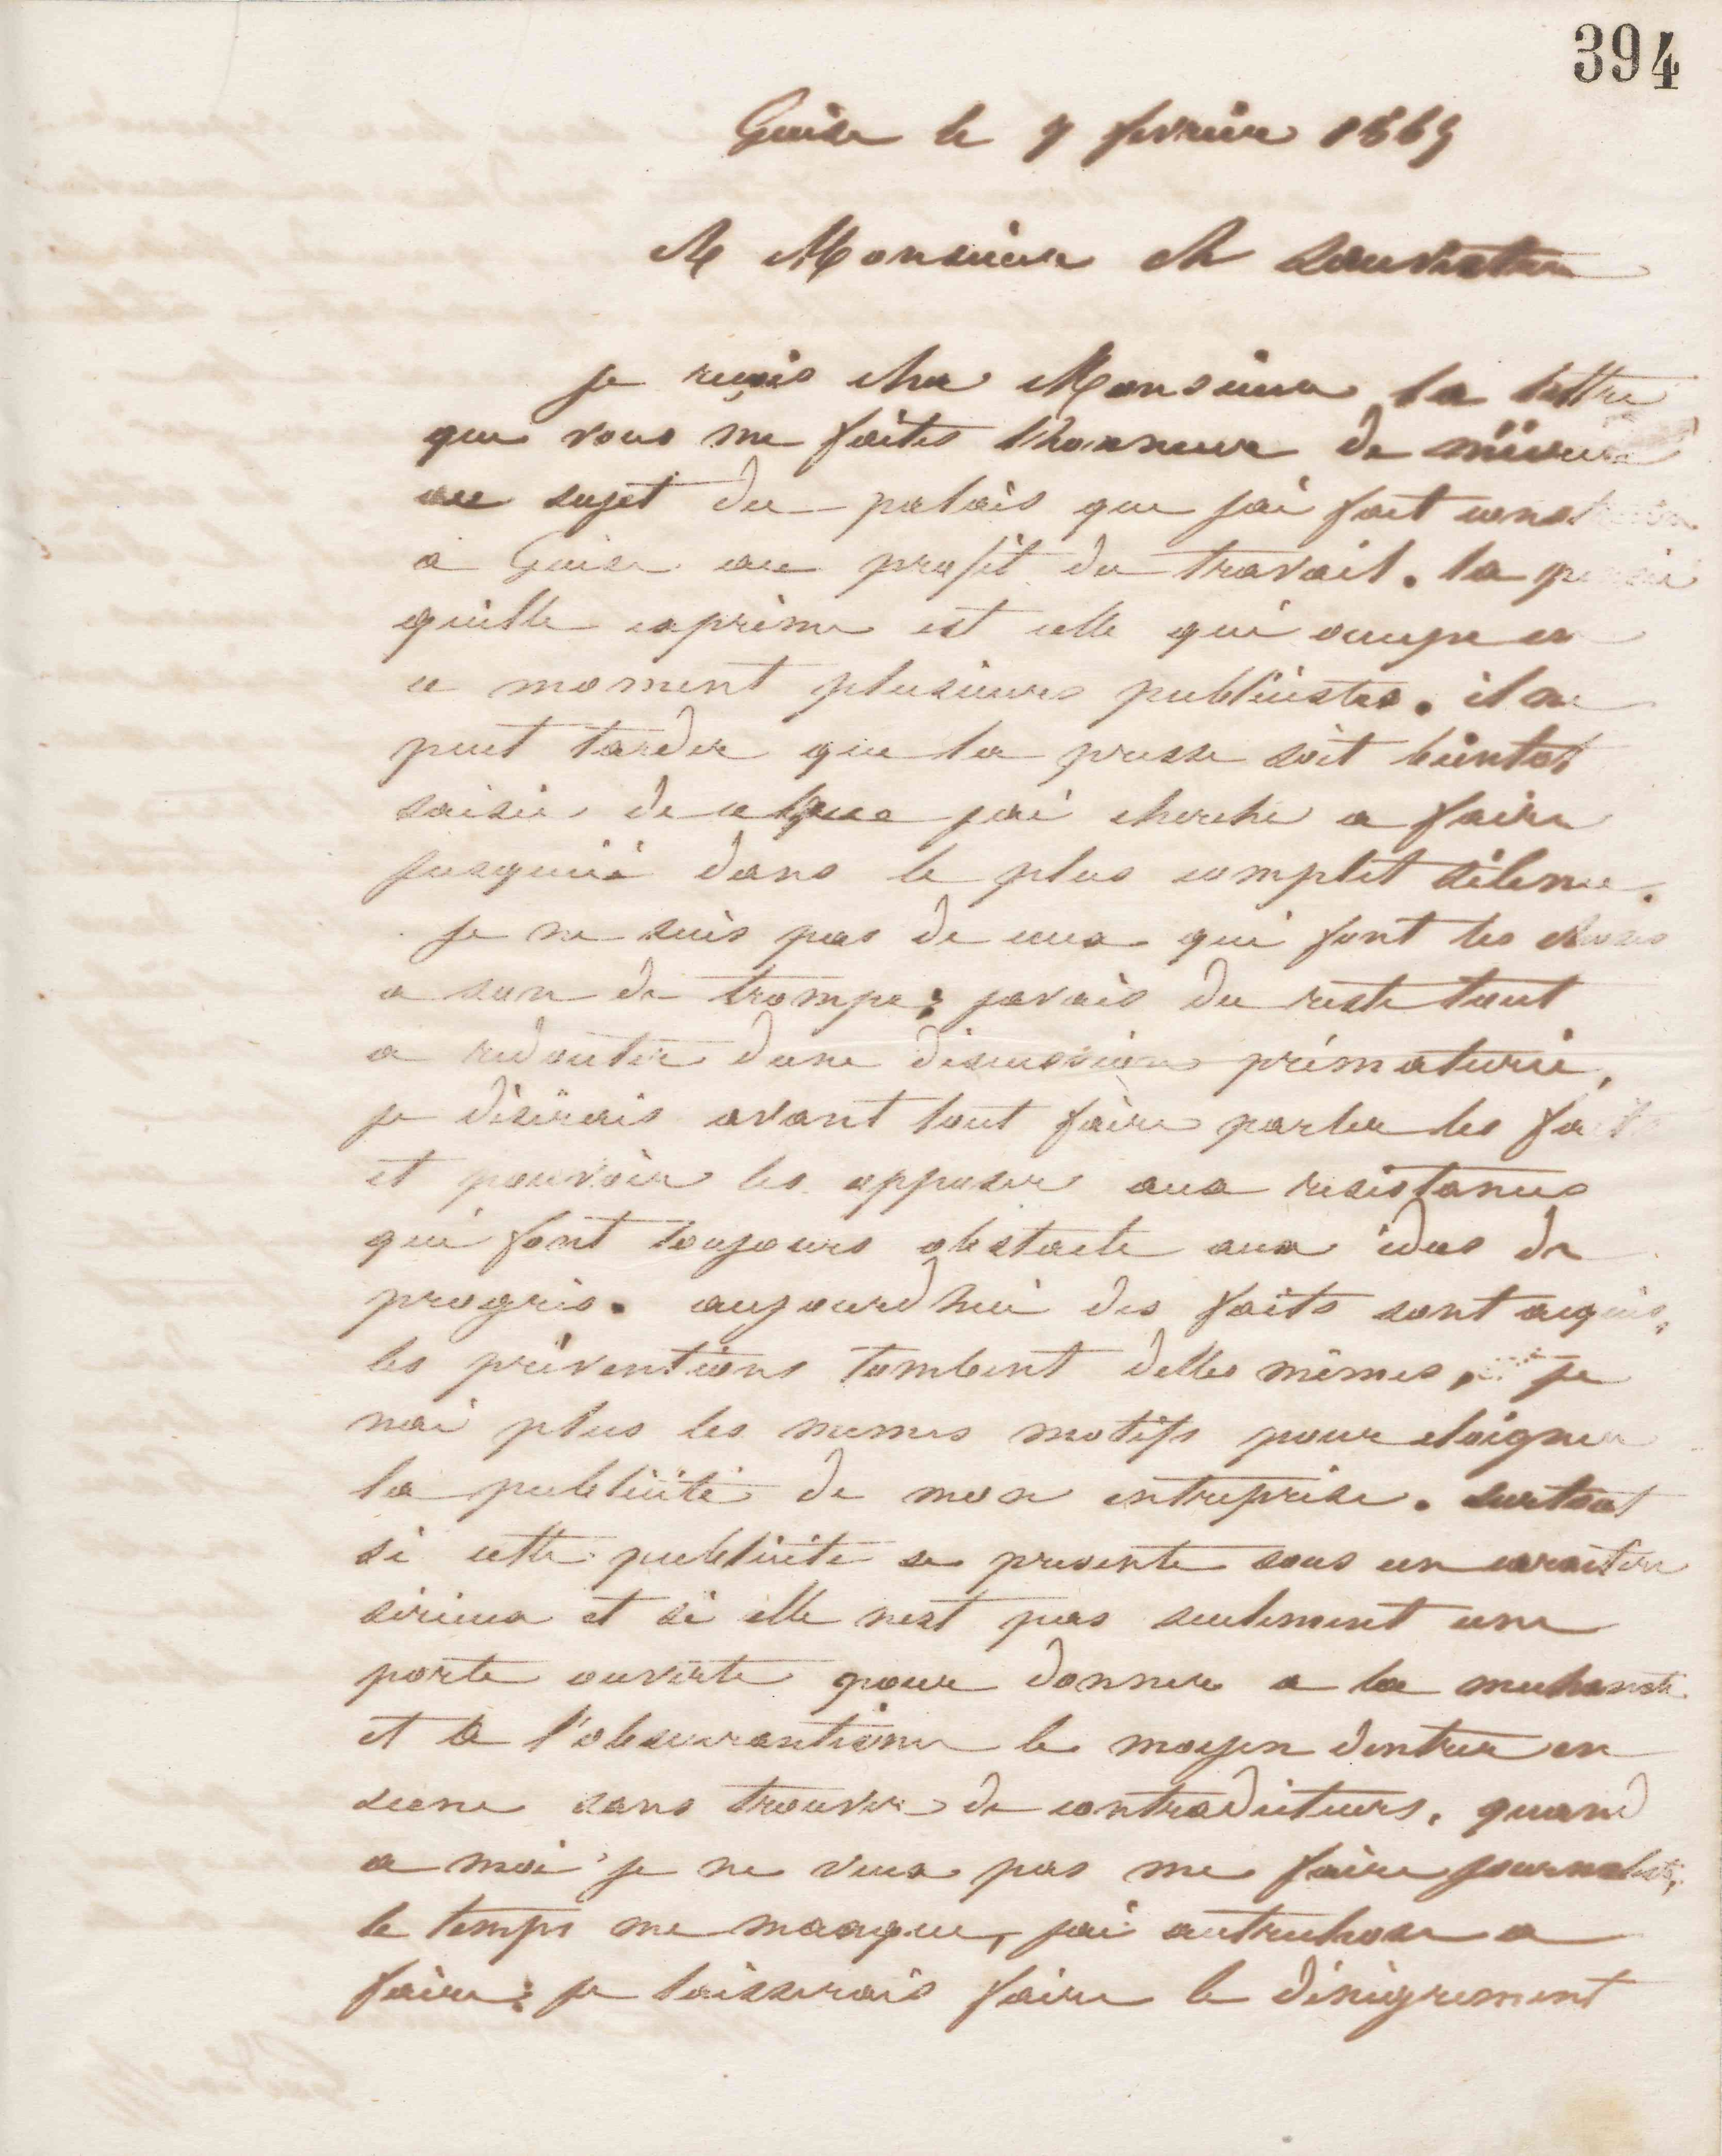 394
Guise le 9 fevrier 1865
A Monsieur Ch Sauvestre
je reçois cher Monsieur la lettre
que vous me faites lhonneur de
au sujet du palais que jai fait construire
a Guise au profit du travail. la pensée
quelle exprime est celle qui occupe en
ce moment plusieurs publicistes. il ne
peut tarder que la presse soit bientot
saisie de ce que jai cherché a faire
jusquici dans le plus complet silence.
je ne suis pas de ceux qui font les choses
a son de trompe; javais du reste tout
a redouter dune discussion prématurée,
je désirais avant tout faire parler les faits
et pouvoir les opposer aux resistances
qui font toujours obstacle aux idées de
progrès. aujourdhui des faits sont acquis,
les préventions tombent delles mêmes, je
nai plus les memes motifs pour eloigner
la publicité de mon entreprise. surtout
si cette publicité se presente sous un caractère
sérieux et si elle nest pas seulement une
porte ouverte pour donner a la mechanceté
et a l'obscurantisme le moyen dentrer en
scene sans trouver de contradicteurs. quand
a moi je ne veux pas me faire journaliste,
le temps me manque, jai autrechose a
faire; je laisserais faire le dénigrement